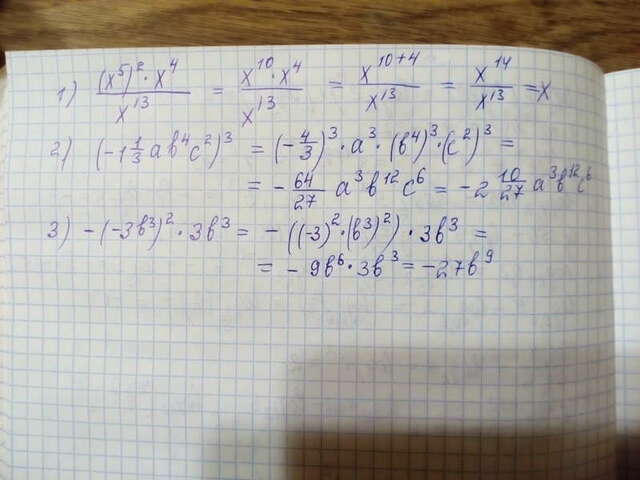 1) (x⁵)²·x⁴/x¹³ = x¹⁰·x⁴/x¹³ = x¹⁰⁺⁴/x¹³ = x¹⁴/x¹³ = x
2) (-1 1/3 ab⁴c²)³ = (-4/3)³·a³·(b⁴)³·(c²)³ =
= -64/27 a³b¹²c⁶ = -2 10/27 a³b¹²c⁶
3) -(-3b³)²·3b³ = -((-3)²·(b³)²)·3b³ =
= -9b⁶·3b³ = -27b⁹